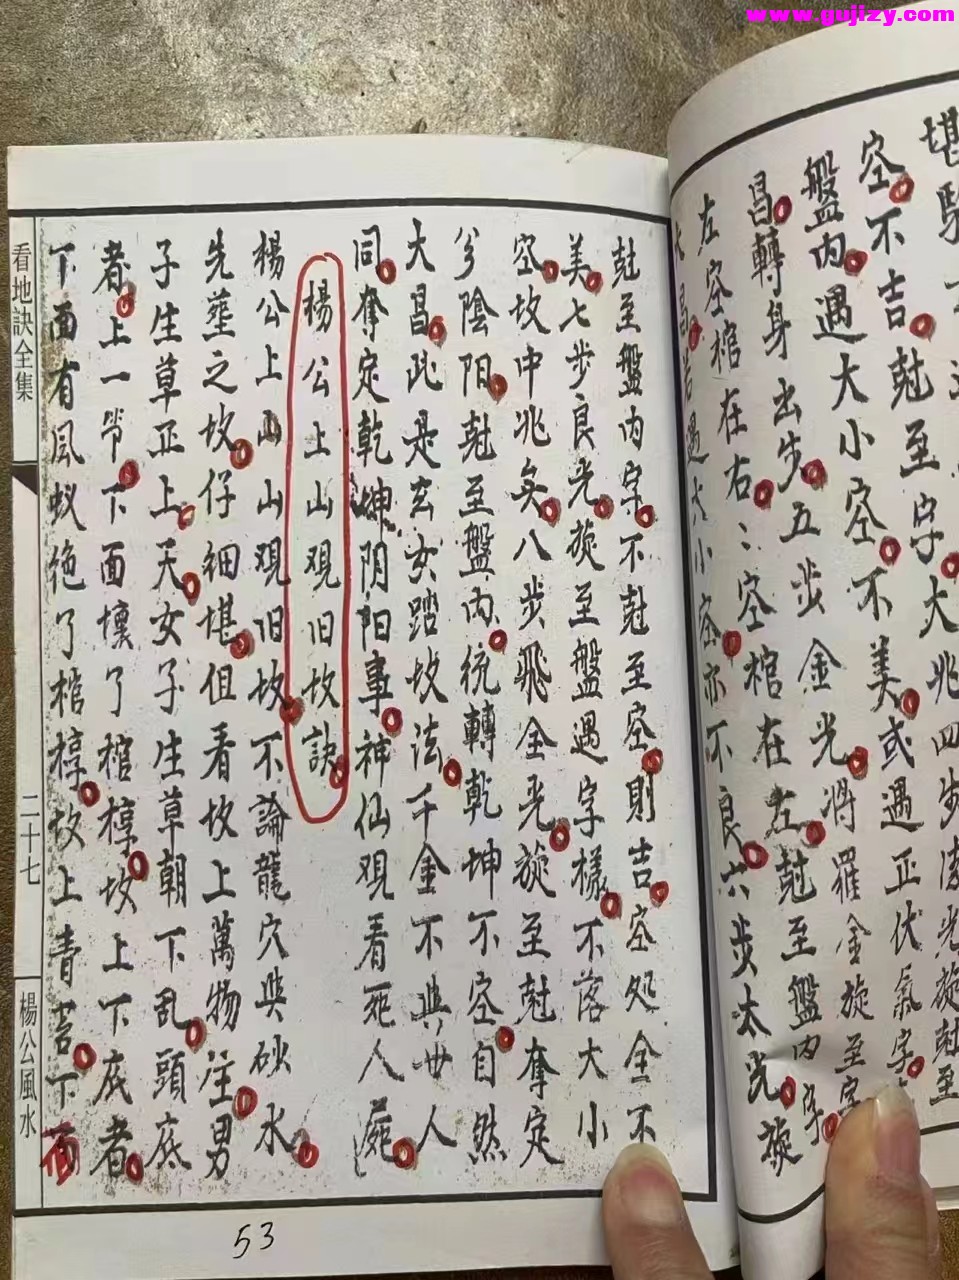 www.gujizy.com
堪
空不吉尅至字大兆四步
盤内遇大小空不美或遇正伏氣字
昌轉身出步五步金光将羅金旋至字
左空棺在右㆓空棺在左尅至盤内字
昌若遇大小空亦不良六步太光旋
尅至盤内字不尅至空則吉空処全不
美七步良光旋至盤遇字樣不落大小
空坟中兆矣八步飛全光旋至尅奪定
兮陰阳尅至盤内統轉乾坤不空自然
大昌此是玄女踏坟法千金不與世人
同奪定乾坤阴阳事神仙观看死人
楊公上山观旧坟訣
楊公上山山观旧坟不論龍穴與砂水
先塟之坟仔細堪但看坟上萬物注男
子生草正上天女子生草朝下乱頭底
者上一節下面壞了棺椁坟上下底者
下面有風蚁绝了棺椁坟上青苔下面
看地訣全集
二十七
楊公風水
53